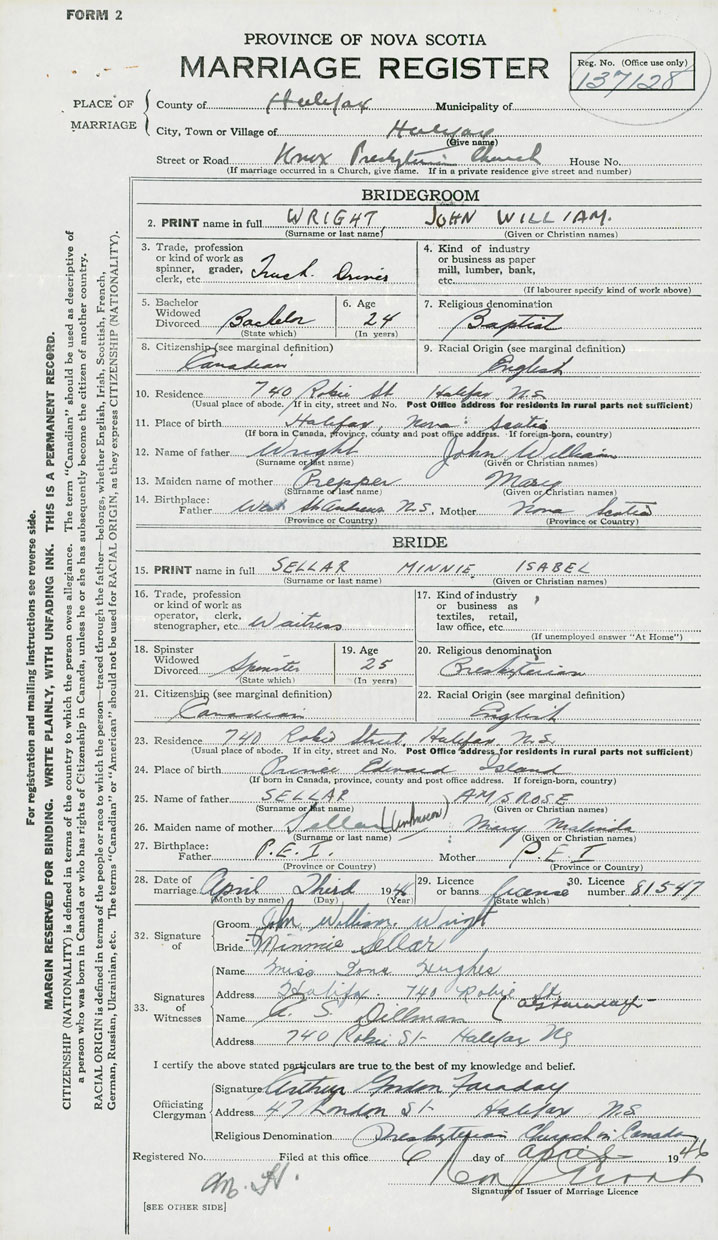 FORM 2
PROVINCE OF NOVA SCOTIA
MARRIAGE REGISTER
Reg. No. (Office use only)
137128
PLACE OF MARRIAGE
County of Halifax Municipality of
City, Town or Village of Halifax
(Give name)
Street or Road Knox Presbyterian Church House No.
(If marriage occurred in a Church, give name. If in a private residence give street and number)
BRIDEGROOM
2. PRINT name in full WRIGHT, JOHN WILLIAM.
(Surname or last name) (Given or Christian names)
3. Trade, profession or kind of work as spinner, grader, clerk, etc. Truck Driver
4. Kind of industry or business as paper mill, lumber, bank, etc.
(If labourer specify kind of work above)
5. Bachelor Widowed Divorced Bachelor
(State which)
6. Age 24
(In years)
7. Religious denomination
Baptist
8. Citizenship (see marginal definition)
Canadian
9. Racial Origin (see marginal definition)
English
10. Residence 740 Robie St Halifax N.S.
(Usual place of abode. If in city, street and No. Post Office address for residents in rural parts not sufficient)
11. Place of birth Halifax, Nova Scotia
(If born in Canada, province, county and post office address. If foreign-born, country)
12. Name of father Wright John William
(Surname or last name) (Given or Christian names)
13. Maiden name of mother Prepper Mary
(Surname or last name) (Given or Christian names)
14. Birthplace: Father West St Andrews N.S. Mother Nova Scotia
(Province or Country) (Province or Country)
BRIDE
15. PRINT name in full SELLAR MINNIE ISABEL
(Surname or last name) (Given or Christian names)
16. Trade, profession or kind of work as operator, clerk, stenographer, etc. Waitress
17. Kind of industry or business as textiles, retail, law office, etc.
(If unemployed answer "At Home")
18. Spinster Widowed Divorced Spinster
(State which)
19. Age 25
(In years)
20. Religious denomination
Presbyterian
21. Citizenship (see marginal definition)
Canadian
22. Racial Origin (see marginal definition)
English
23. Residence 740 Robie Street, Halifax, N.S.
(Usual place of abode. If in city, street and No. Post Office address for residents in rural parts not sufficient)
24. Place of birth Prince Edward Island
(If born in Canada, province, county and post office address. If foreign-born, country)
25. Name of father SELLAR AMSROSE
(Surname or last name) (Given or Christian names)
26. Maiden name of mother Sellar (unknown) Mary Malinda
(Surname or last name) (Given or Christian names)
27. Birthplace: Father P.E.I. Mother P.E.I
(Province or Country) (Province or Country)
28. Date of marriage April Third 1946
(Month by name) (Day) (Year)
29. Licence or banns license
(State which)
30. Licence number 81547
32. Signature of
Groom John William Wright
Bride Minnie Sellar
33. Signatures of Witnesses
Name Miss Hughes
Address Halifax 740 Robie St
Name C. S. Dillman
Address 740 Robie St Halifax NS
I certify the above stated particulars are true to the best of my knowledge and belief.
Officiating Clergyman
Signature Arthur Gordon Faraday
Address 47 London St Halifax N.S.
Religious Denomination Presbyterian Church in Canada
Registered No. Filed at this office 6 day of April 1946
Signature of Issuer of Marriage Licence
[SEE OTHER SIDE]
For registration and mailing instructions see reverse side.
MARGIN RESERVED FOR BINDING. WRITE PLAINLY, WITH UNFADING INK. THIS IS A PERMANENT RECORD.
CITIZENSHIP (NATIONALITY) is defined in terms of the country to which the person owes allegiance. The term "Canadian" should be used as descriptive of
a person who was born in Canada or who has rights of Citizenship in Canada, unless he or she has subsequently become the citizen of another country.
RACIAL ORIGIN is defined in terms of the people or race to which the person—traced through the father—belongs, whether English, Irish, Scottish, French,
German, Russian, Ukrainian, etc. The terms "Canadian" or "American" should not be used for RACIAL ORIGIN, as they express CITIZENSHIP (NATIONALITY).